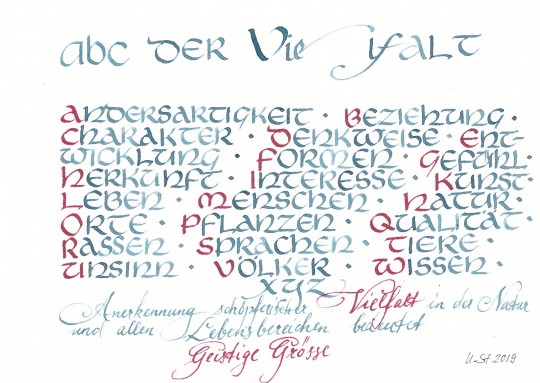 abc DER Vielfalt
Andersartigkeit · Beziehung ·
Charakter · Denkweise · Ent-
wicklung · Formen · Gefühl ·
Herkunft · Interesse · Kunst
Leben · Menschen · Natur ·
Orte · Pflanzen · Qualität ·
Rassen · Sprachen · Tiere ·
Unsinn · Völker · Wissen ·
xyz
Anerkennung schöpferischer Vielfalt in der Natur
und allen Lebensbereichen bedeutet
Geistige Grösse
U.St. 2019